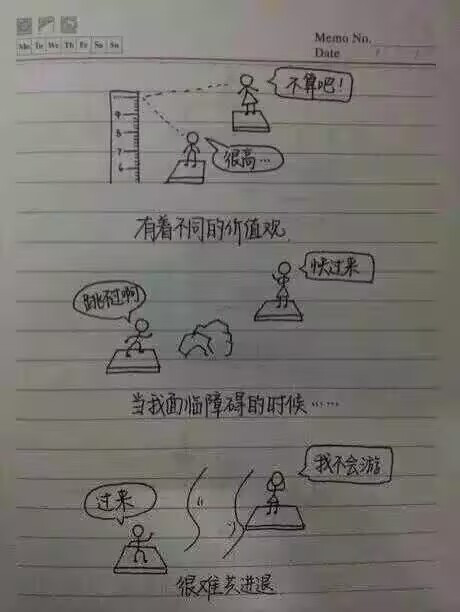 Memo No.
Mo Tu We Th Fr Sa Su
Date / /
不算吧！
9
8
7
6
很高…
有着不同的价值观
快过来
跳不过啊
当我面临障碍的时候……
我不会游
过来
很难共进退